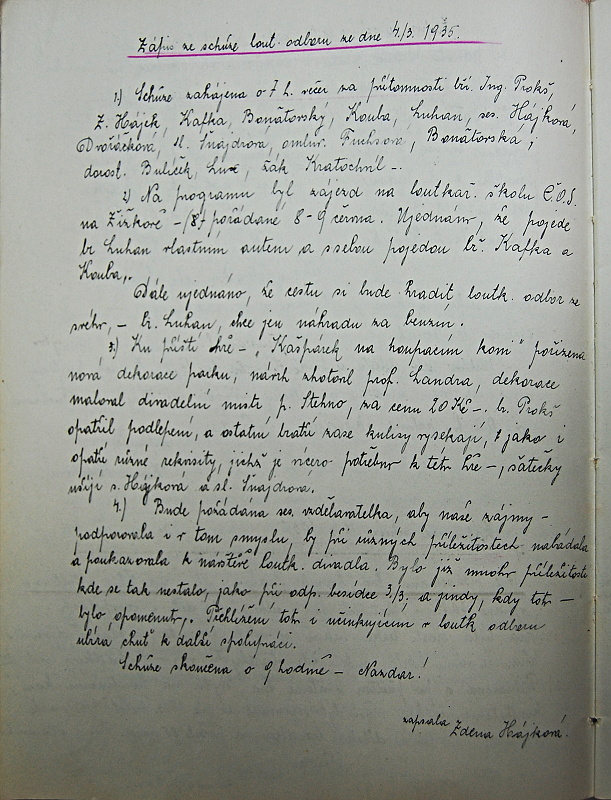 Zápis ze schůze lout. odboru ze dne 4./3. 1935.
1.) Schůze zahájena o 7 h. večer za přítomnosti bří. Ing. Prokš,
Z. Hájek, Kafka, Bonátorský, Kouba, Luhan, ses. Hájková,
Dvořáčková, sl. Šnajdrova, omluv. Fuchsova, Bonátorská,
dorost. Bulíček, Lux, žák Kratochvíl –
2) Na programu byl zájezd na loutkař. školu Č.O.S.
na Žižkově – pořádané 8 – 9 června. Ujednáno, že pojede
br Luhan vlastním autem a ssebou pojedou bř. Kafka a
Kouba,.
Dále ujednáno, že cestu si bude hradit loutk. odbor ze
svého, – br. Luhan, chce jen náhradu za benzin.
3.) Ku příští hře – „Kašpárek na houpacím koni" pořízena
nová dekorace parku, návrh zhotovil prof. Landra, dekorace
maloval divadelní mistr p. Stehno, za cenu 20 Kč –. br. Prokš
opatřil podlepení, a ostatní bratří zase kulisy vysekají, jako i
opatří různé rekvisity, jichž je vícero potřebno k této hře –, šátečky
ušijí s. Hájkova a sl. Šnajdrova.
4.) Bude požádana ses. vzdělavatelka, aby naše zájmy –
podporovala i v tom smyslu, by při různých příležitostech nabádala
a poukazovala k návštěvě loutk. divadla. Bylo již mnoho příležitostí
kde se tak nestalo, jako při odp. besídce 3/3. a jindy, kdy toto –
bylo opomenuto,. Přehlížení toto i účinkujícím v loutk odboru
ubírá chuť k další spolupráci.
Schůze skončena o 9 hodině – Nazdar!
zapsala Zdena Hájková.